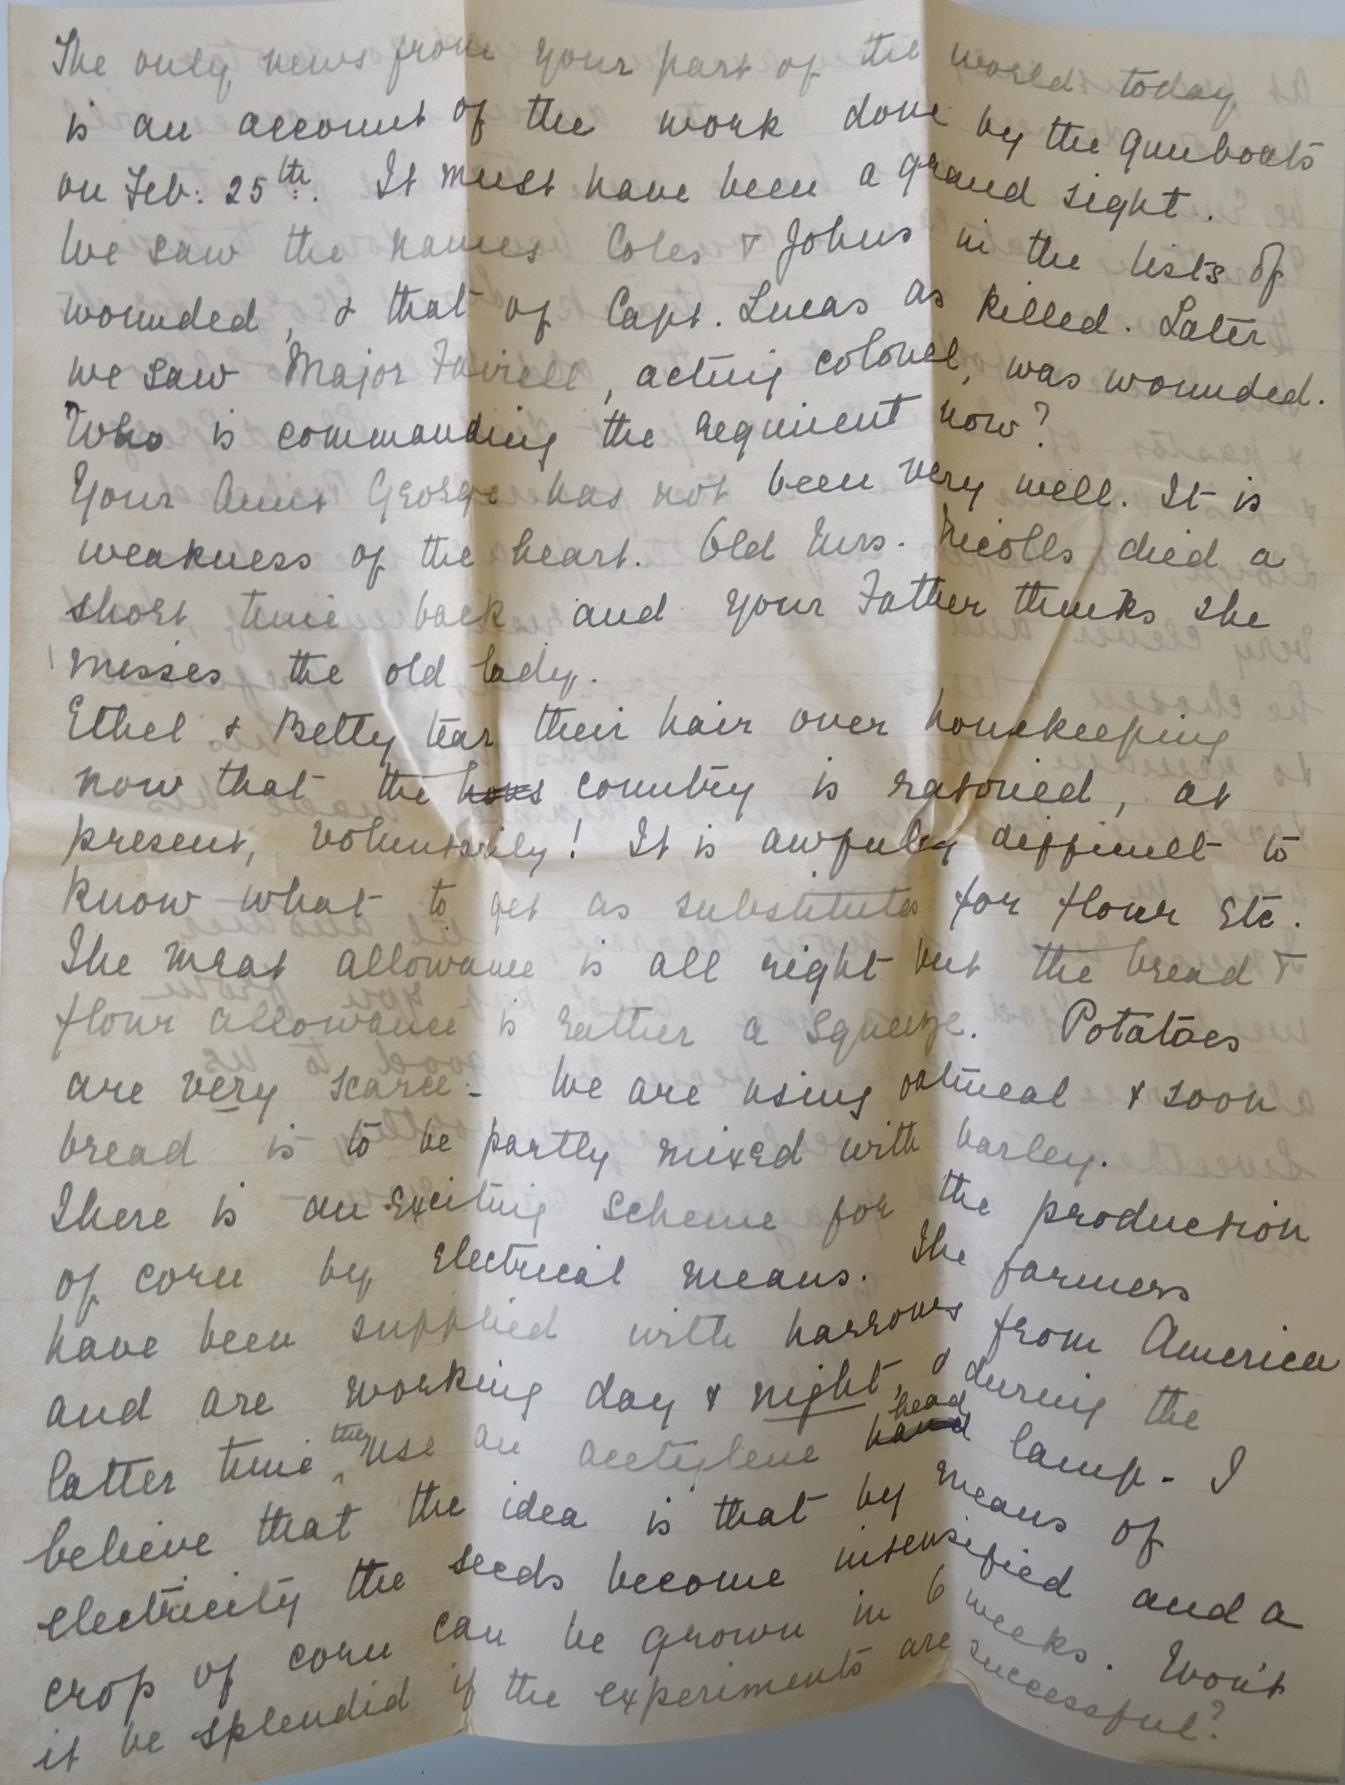 The only news from your part of the world today
is an account of the work done by the gunboats
on Feb: 25th. It must have been a grand sight.
We saw the names Coles & Johns in the lists of
wounded, & that of Capt. Lucas as killed. Later
we saw Major Farrell, acting colonel, was wounded.
Who is commanding the regiment now?
Your Aunt George has not been very well. It is
weakness of the heart. Old Mrs. Nicolls died a
short time back and your Father thinks she
misses the old lady.
Ethel & Betty tear their hair over housekeeping
now that the hous country is rationed, at
present, voluntarily! It is awfully difficult to
know what to get as substitutes for flour etc.
The meat allowance is all right but the bread &
flour allowance is rather a squeeze. Potatoes
are very scarce - We are using oatmeal & soon
bread is to be partly mixed with barley.
There is an exciting scheme for the production
of corn by electrical means. The farmers
have been supplied with harrows from America
and are working day & night, & during the
latter time they use an acetylene hand head lamp - I
believe that the idea is that by means of
electricity the seeds become intensified and a
crop of corn can be grown in 6 weeks. Won't
it be splendid if the experiments are successful?